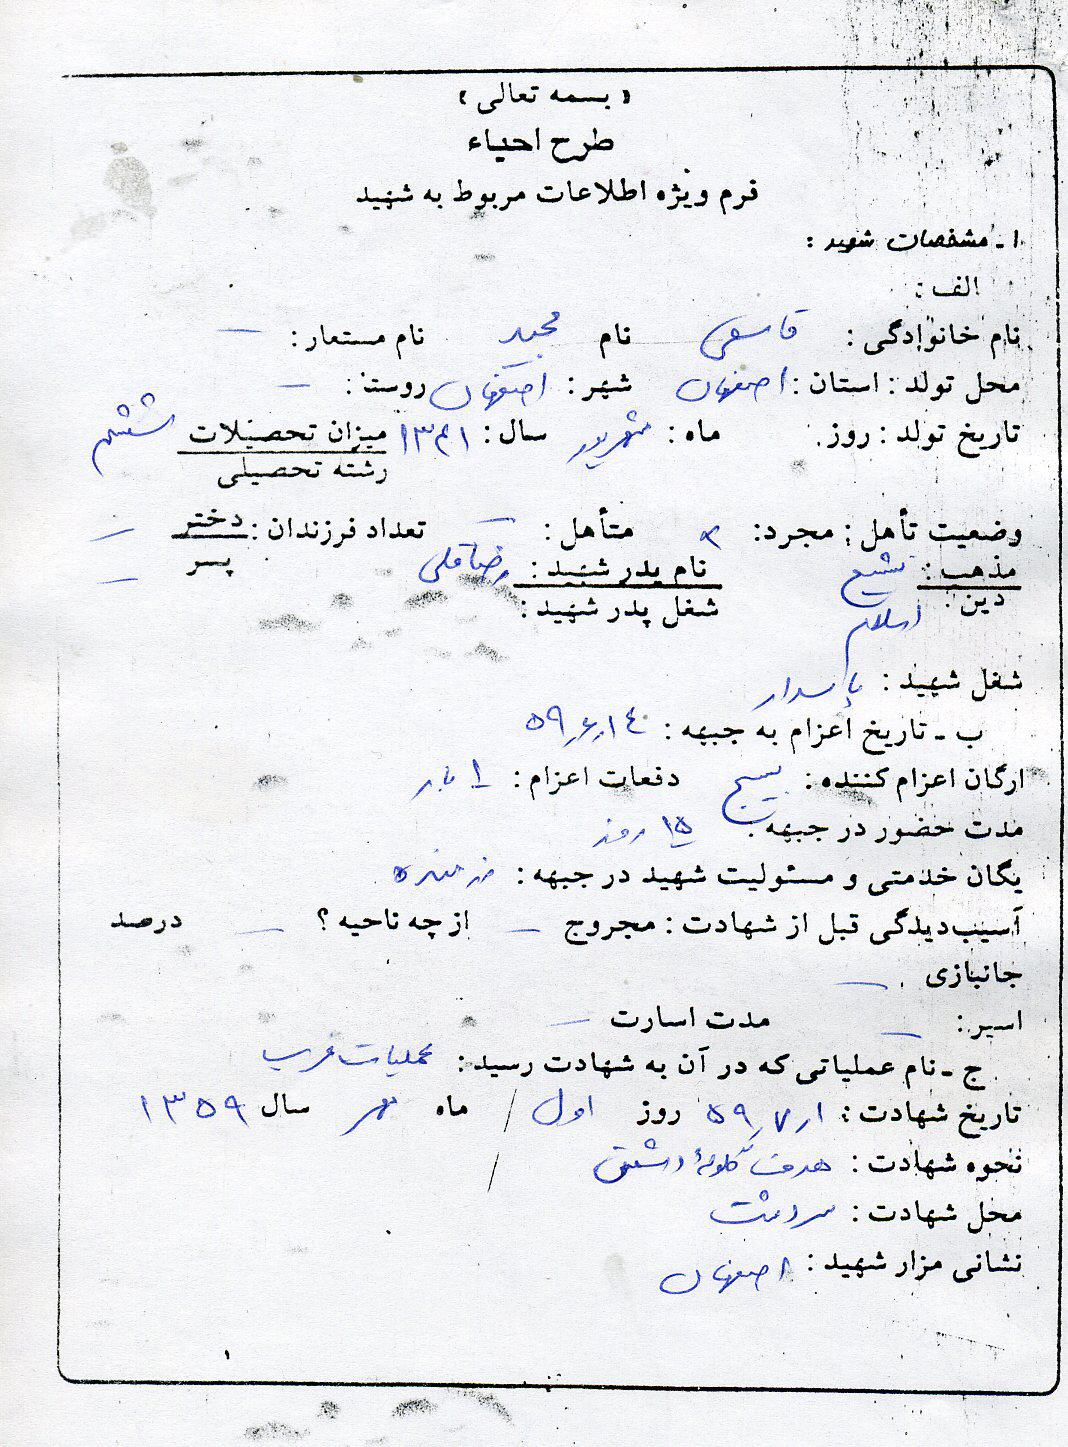 « بسمه تعالی »
طرح احیاء
فرم ویژه اطلاعات مربوط به شهید
۱ ـ مشخصات شهید :
الف :
نام خانوادگی : قاسمی نام مجید نام مستعار : —
محل تولد : استان : اصفهان شهر : اصفهان روستا : —
تاریخ تولد : روز ماه : شهریور سال : ۱۳۴۱ میزان تحصیلات ششم
رشته تحصیلی
وضعیت تأهل : مجرد : × متأهل : — تعداد فرزندان : دختر —
مذهب : شیع نام پدر شهید : رضاقلی پسر —
دین : اسلام شغل پدر شهید :
شغل شهید : پاسدار
ب ـ تاریخ اعزام به جبهه : ۵۹٫۶٫۱۴
ارگان اعزام کننده : بسیج دفعات اعزام : ۱ بار
مدت حضور در جبهه : ۱۵ روز
یگان خدمتی و مسئولیت شهید در جبهه : رزمنده
آسیب‌دیدگی قبل از شهادت : مجروح — از چه ناحیه ؟ — درصد
جانبازی . —
اسیر : — مدت اسارت —
ج ـ نام عملیاتی که در آن به شهادت رسید : عملیات غرب
تاریخ شهادت : ۵۹٫۷٫۱ روز اول / ماه مهر سال ۱۳۵۹
نحوه شهادت : هدف گلوله دشمن /
محل شهادت : سردشت
نشانی مزار شهید : اصفهان